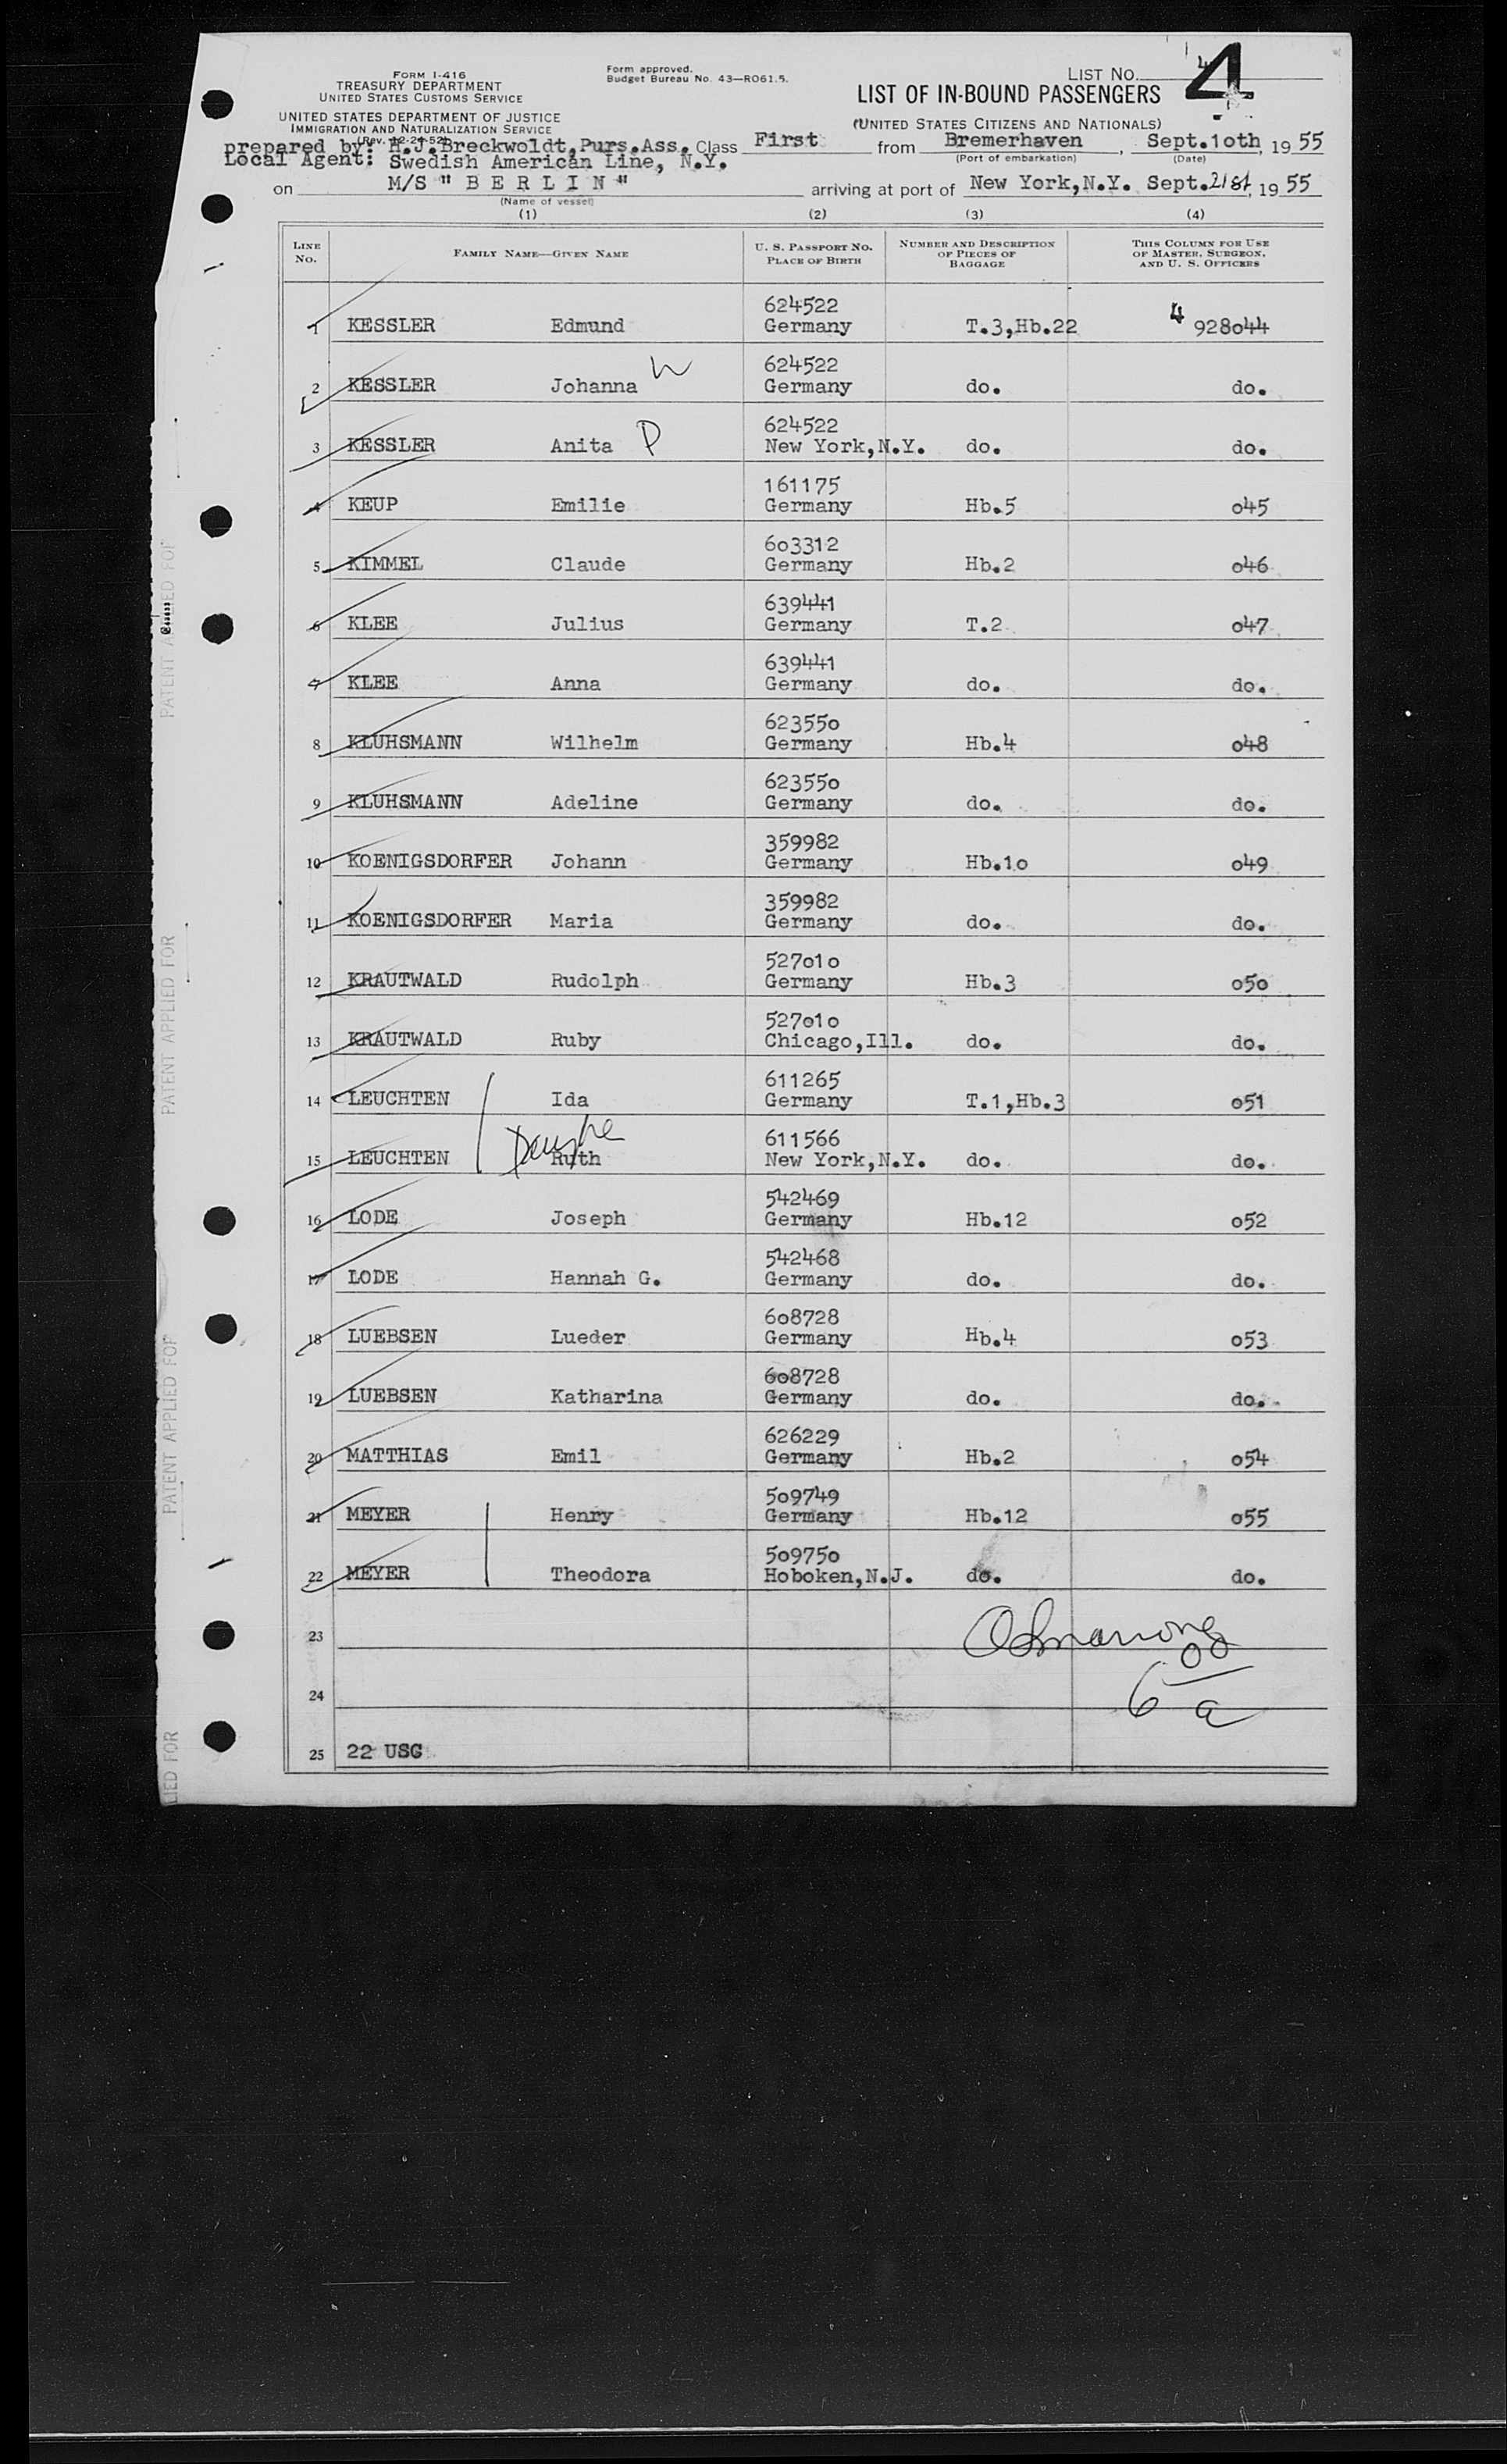 FORM I-416
TREASURY DEPARTMENT
UNITED STATES CUSTOMS SERVICE
UNITED STATES DEPARTMENT OF JUSTICE
IMMIGRATION AND NATURALIZATION SERVICE
(Rev. 12-24-52)
Form approved.
Budget Bureau No. 43—RO61.5.
LIST No. 4
LIST OF IN-BOUND PASSENGERS
(UNITED STATES CITIZENS AND NATIONALS)
prepared by: H.J.Breckwoldt,Purs.Ass. Class First from Bremerhaven, Sept.10th, 1955
(Port of embarkation) (Date)
Local Agent: Swedish American Line, N.Y.
on M/S " B E R L I N " arriving at port of New York,N.Y. Sept.21st, 1955
(Name of vessel)
(1) (2) (3) (4)
LINE No. FAMILY NAME—GIVEN NAME U. S. PASSPORT NO. PLACE OF BIRTH NUMBER AND DESCRIPTION OF PIECES OF BAGGAGE THIS COLUMN FOR USE OF MASTER, SURGEON, AND U. S. OFFICERS
624522 4
1 KESSLER Edmund Germany T.3,Hb.22 928044
624522
2 KESSLER Johanna W Germany do. do.
624522
3 KESSLER Anita D New York,N.Y. do. do.
161175
4 KEUP Emilie Germany Hb.5 045
603312
5 KIMMEL Claude Germany Hb.2 046
639441
6 KLEE Julius Germany T.2 047
639441
7 KLEE Anna Germany do. do.
623550
8 KLUHSMANN Wilhelm Germany Hb.4 048
623550
9 KLUHSMANN Adeline Germany do. do.
359982
10 KOENIGSDORFER Johann Germany Hb.10 049
359982
11 KOENIGSDORFER Maria Germany do. do.
527010
12 KRAUTWALD Rudolph Germany Hb.3 050
527010
13 KRAUTWALD Ruby Chicago,Ill. do. do.
611265
14 LEUCHTEN Ida Germany T.1,Hb.3 051
611566
15 LEUCHTEN Ruth New York,N.Y. do. do.
542469
16 LODE Joseph Germany Hb.12 052
542468
17 LODE Hannah G. Germany do. do.
608728
18 LUEBSEN Lueder Germany Hb.4 053
608728
19 LUEBSEN Katharina Germany do. do.
626229
20 MATTHIAS Emil Germany Hb.2 054
509749
21 MEYER Henry Germany Hb.12 055
509750
22 MEYER Theodora Hoboken,N.J. do. do.
23
24
25 22 USC
PATENT APPLIED FOR
PATENT APPLIED FOR
PATENT APPLIED FOR